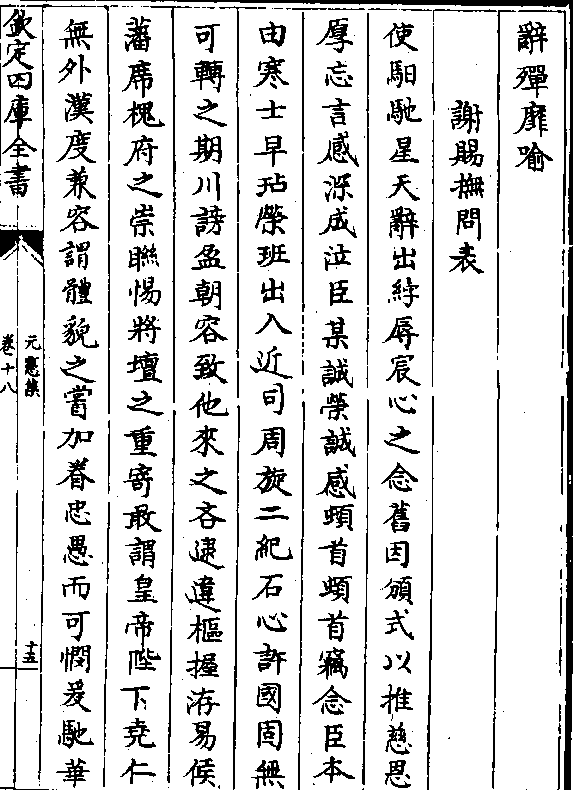 辭殫靡喻
謝賜撫問表
使馹馳星天辭出綍辱宸心之念舊因頒式以推慈恩
厚忘言感深成泣臣某誠榮誠感頓首頓首竊念臣本
由寒士早玷榮班出入近司周旋二紀石心許國固無
可轉之期川謗盈朝容致他來之吝逮違樞握洊易侯
藩席槐府之崇聯惕將壇之重寄敢謂皇帝陛下堯仁
無外漢度兼容謂體貌之嘗加眷忠愚而可憫爰馳華
欽定四庫全書
元憲集
卷十八
十五